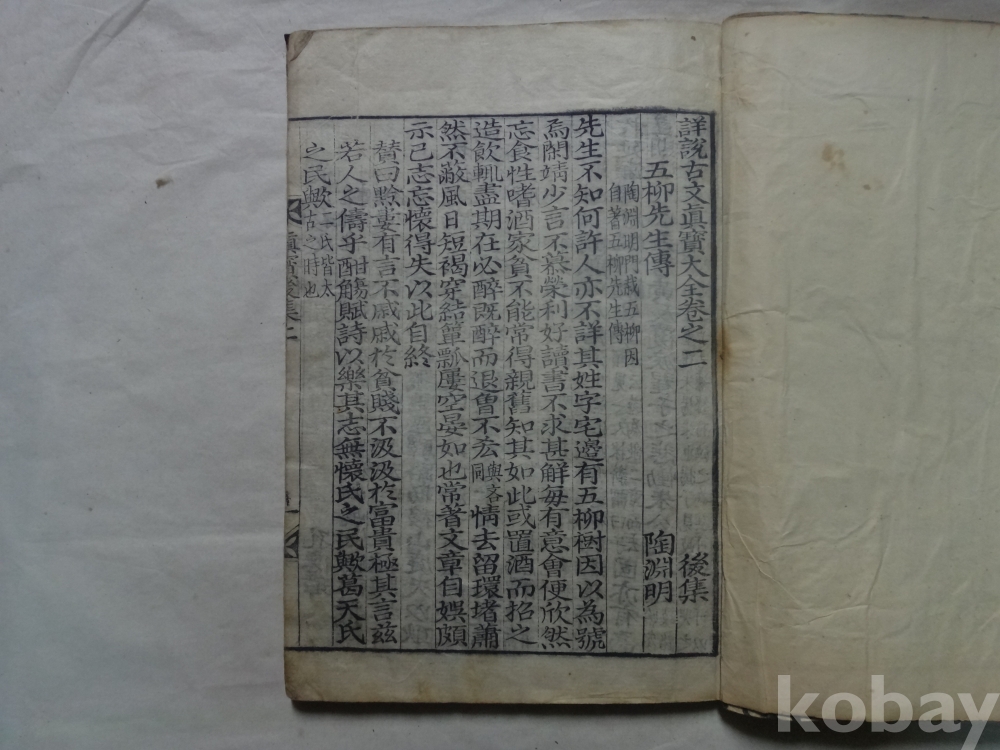 詳說古文眞寶大全卷之二 後集
五柳先生傳 陶淵明
陶淵明門栽五柳因
自著五柳先生傳
先生不知何許人亦不詳其姓字宅邊有五柳樹因以為號
焉閑靖少言不慕榮利好讀書不求甚解每有意會便欣然
忘食性嗜酒家貧不能常得親舊知其如此或置酒而招之
造飮輒盡期在必醉既醉而退曾不吝
與吝
同
情去留環堵蕭
然不蔽風日短褐穿結簞瓢屢空晏如也常著文章自娛頗
示己志忘懷得失以此自終
贊曰黔婁有言不戚戚於貧賤不汲汲於富貴極其言玆
若人之儔乎
酣觴賦詩以樂其志無懷氏之民歟葛天氏
之民歟
二氏皆太
古之時也
眞寶後集二
kobay